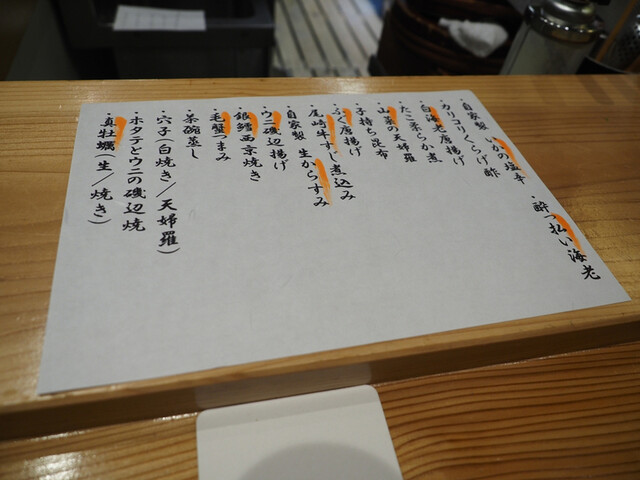 ・自家製 いかの塩辛
・酔っ払い海老
・カリコリくらげ酢
・白海老唐揚げ
・たこ柔らか煮
・山菜の天婦羅
・子持ち昆布
・ふぐ唐揚げ
・尾崎牛すじ煮込み
・自家製 生からすみ
・ウニ磯辺揚げ
・銀鱈西京焼き
・毛蟹つまみ
・茶碗蒸し
・穴子(白焼き/天婦羅)
・ホタテとウニの磯辺焼
・真牡蠣(生/焼き)